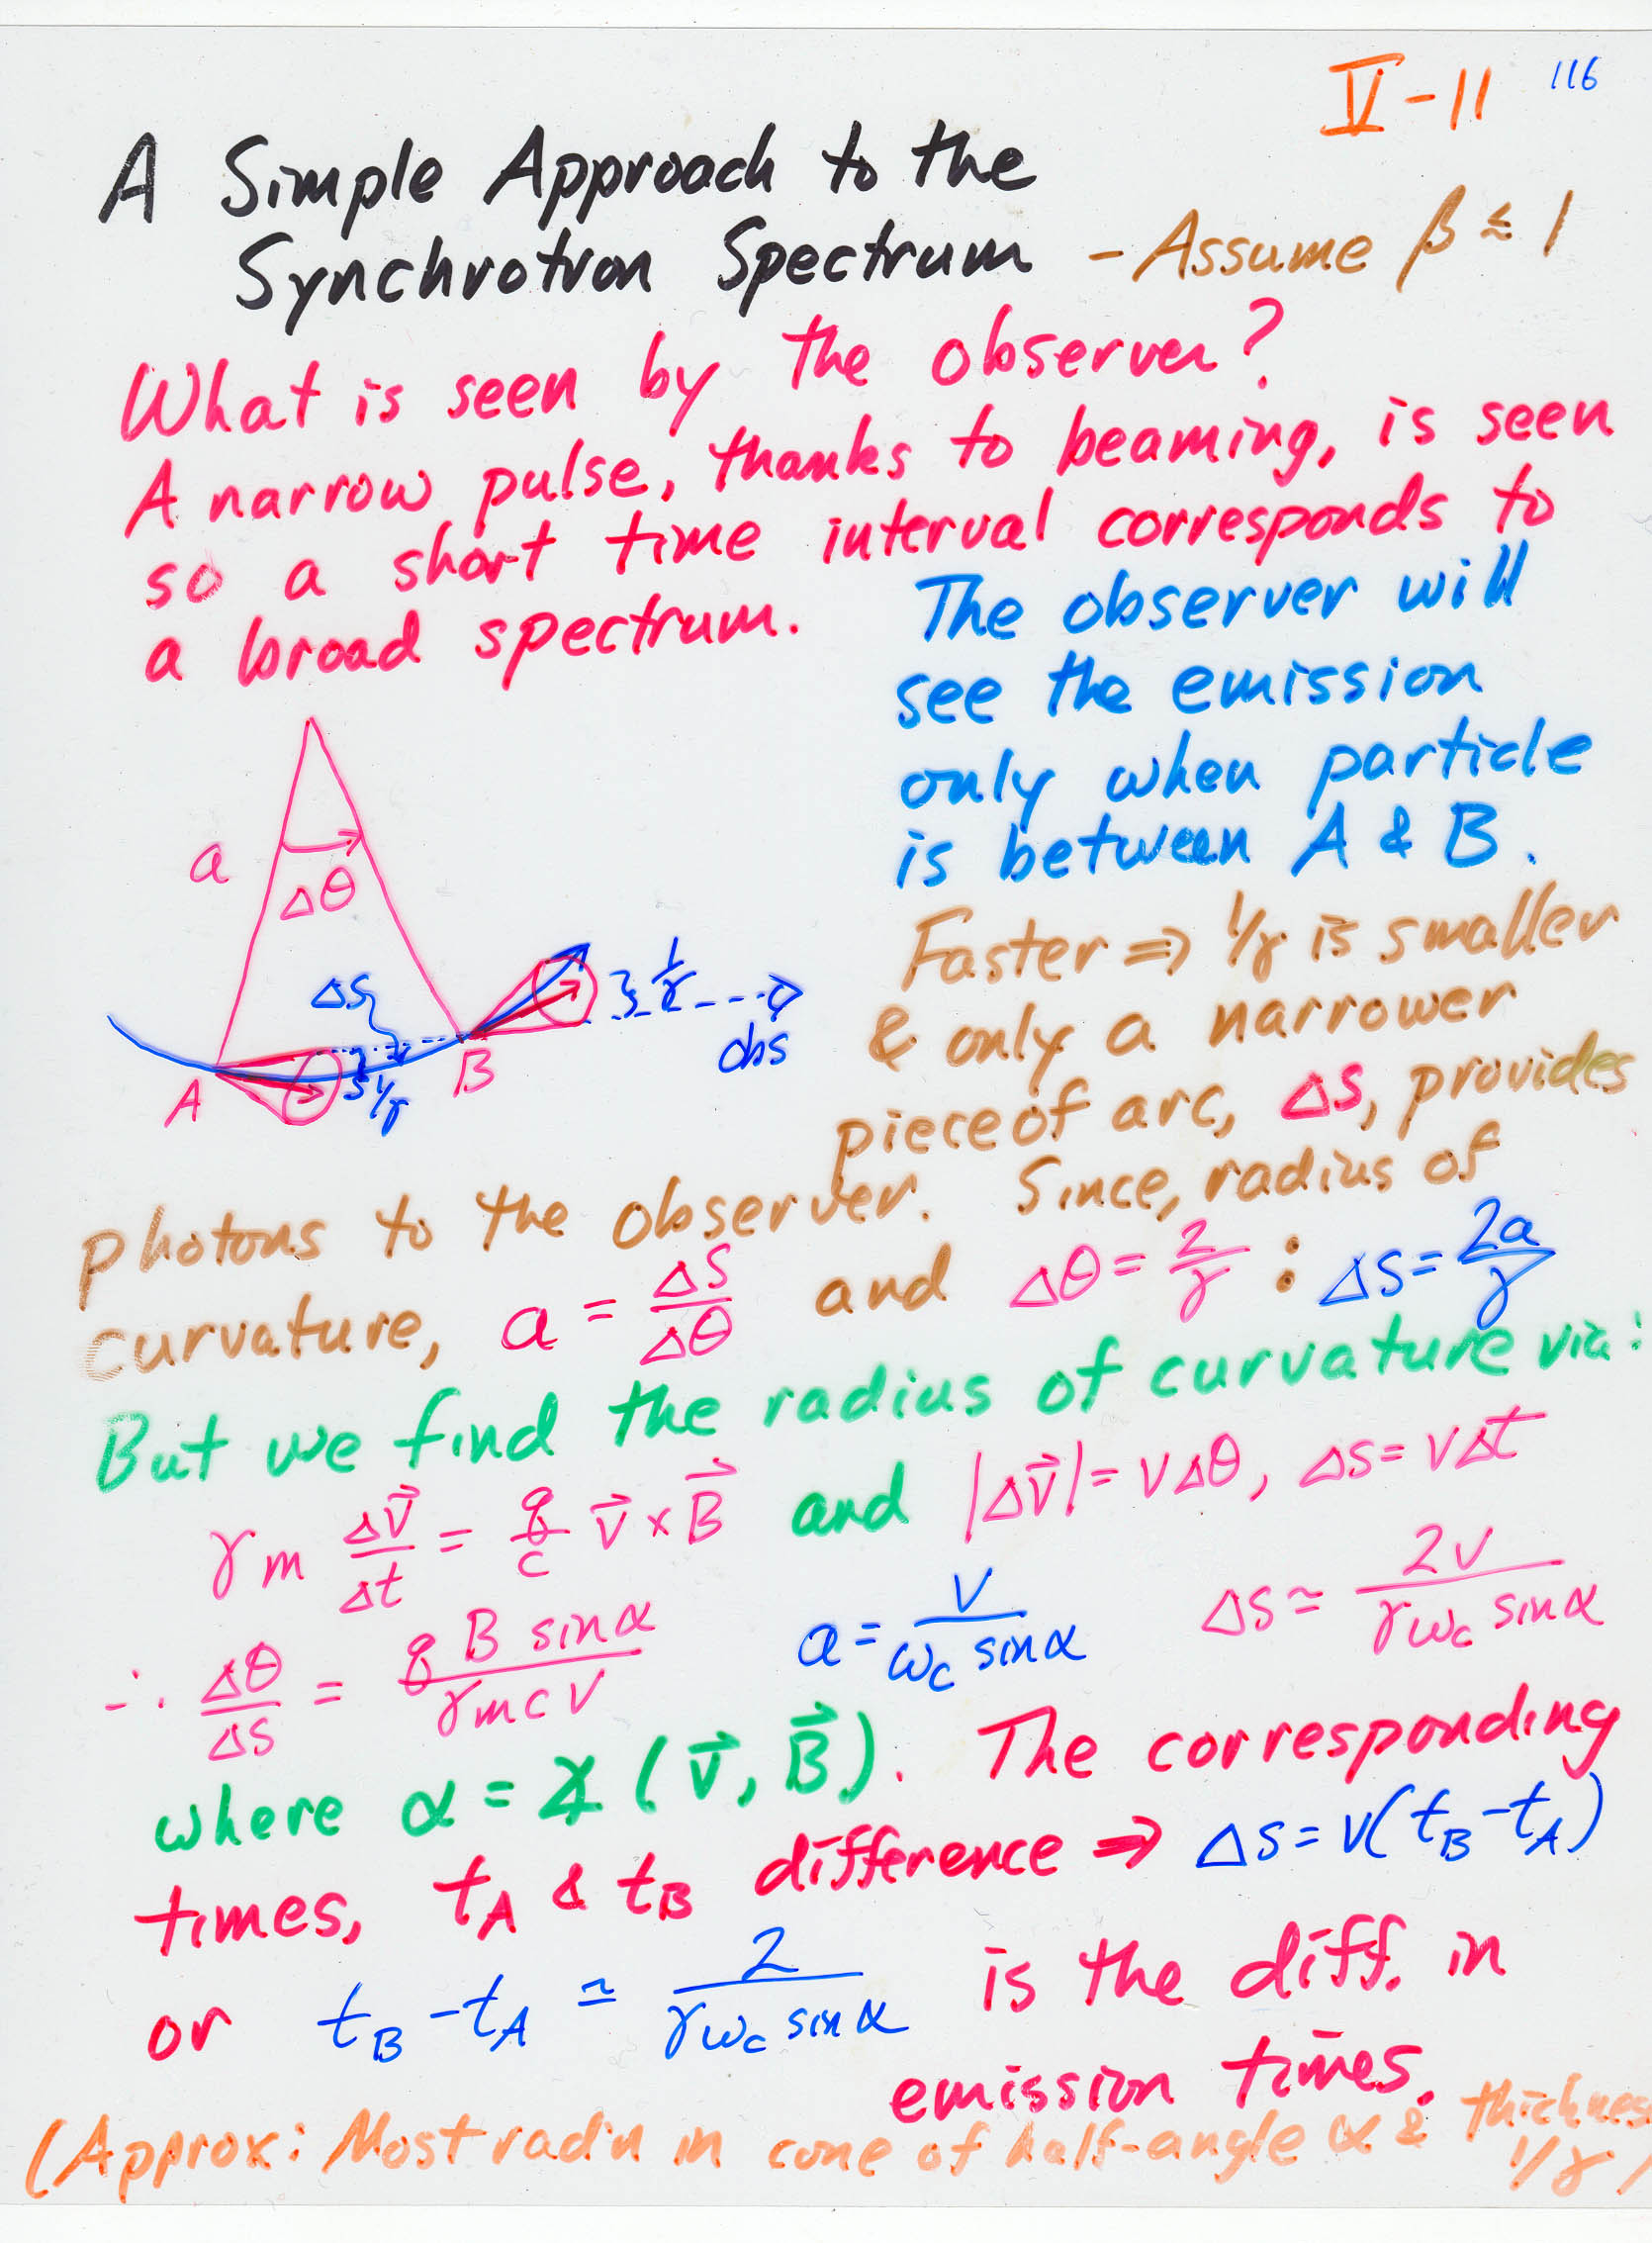 V-11 116
A Simple Approach to the
Synchrotron Spectrum - Assume β ≲ 1
What is seen by the observer?
A narrow pulse, thanks to beaming, is seen
so a short time interval corresponds to
a broad spectrum.
The observer will
see the emission
only when particle
is between A & B.
a
Δθ
Δs
A
B
1/γ
1/γ
obs
Faster ⇒ 1/γ is smaller
& only a narrower
piece of arc, Δs, provides
photons to the observer. Since, radius of
curvature, a = Δs/Δθ and Δθ = 2/γ : Δs = 2a/γ
But we find the radius of curvature via:
γm Δv⃗/Δt = q/c v⃗ × B⃗ and |Δv⃗| = vΔθ, Δs = vΔt
∴ Δθ/Δs = q B sinα/γmcv a = v/ω_c sinα Δs ≃ 2v/γω_c sinα
where α = ∡ (v⃗, B⃗). The corresponding
times, t_A & t_B difference ⇒ Δs = v(t_B - t_A)
or t_B - t_A ≃ 2/γω_c sinα is the diff. in
emission times.
(Approx: Most rad'n in cone of half-angle α & thickness
1/γ)